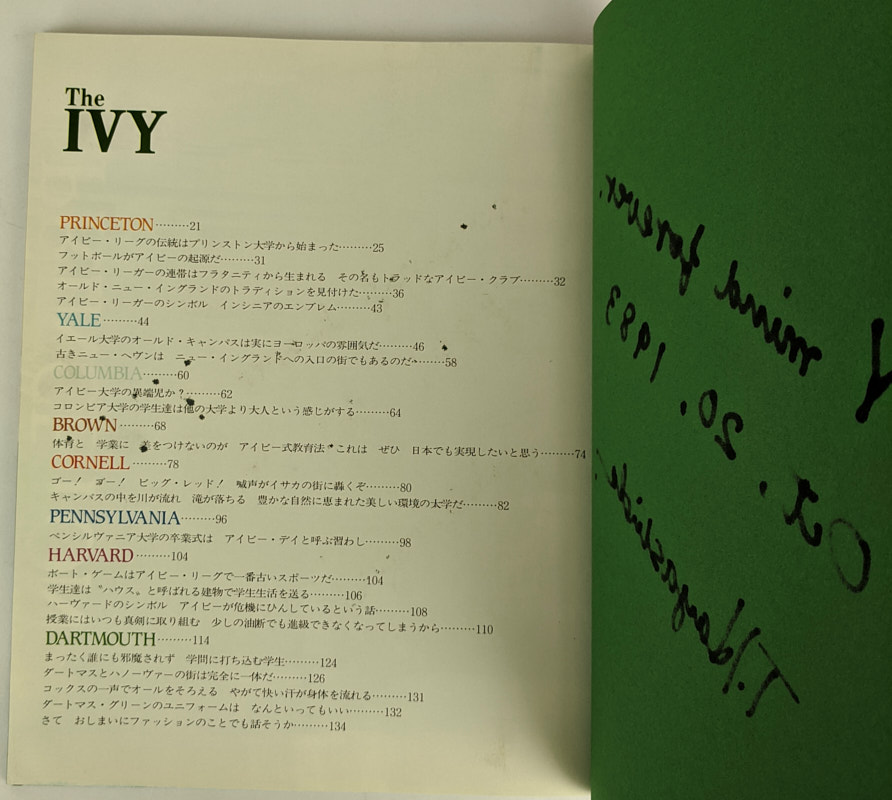 The
IVY
PRINCETON………21
アイビー・リーグの伝統はプリンストン大学から始まった………25
フットボールがアイビーの起源だ………31
アイビー・リーガーの連帯はフラタニティから生まれる その名もトラッドなアイビー・クラブ………32
オールド・ニュー・イングランドのトラディションを見付けた………36
アイビー・リーガーのシンボル インシニアのエンブレム………43
YALE………44
イエール大学のオールド・キャンパスは実にヨーロッパの雰囲気だ………46
古きニュー・ヘヴンは ニュー・イングランドへの入口の街でもあるのだ………58
COLUMBIA………60
アイビー大学の異端児か?………62
コロンビア大学の学生達は他の大学より大人という感じがする………64
BROWN………68
体育と 学業に 差をつけないのが アイビー式教育法 これは ぜひ 日本でも実現したいと思う………74
CORNELL………78
ゴー! ゴー! ビッグ・レッド! 喊声がイサカの街に轟くぞ………80
キャンパスの中を川が流れ 滝が落ちる 豊かな自然に恵まれた美しい環境の大学だ………82
PENNSYLVANIA………96
ペンシルヴァニア大学の卒業式は アイビー・デイと呼ぶ習わし………98
HARVARD………104
ボート・ゲームはアイビー・リーグで一番古いスポーツだ………104
学生達は〝ハウス〟と呼ばれる建物で学生生活を送る………106
ハーヴァードのシンボル アイビーが危機にひんしているという話………108
授業にはいつも真剣に取り組む 少しの油断でも進級できなくなってしまうから………110
DARTMOUTH………114
まったく誰にも邪魔されず 学問に打ち込む学生………124
ダートマスとハノーヴァーの街は完全に一体だ………126
コックスの一声でオールをそろえる やがて快い汗が身体を流れる………131
ダートマス・グリーンのユニフォームは なんといってもいい………132
さて おしまいにファッションのことでも話そうか………134
mind forever.
Oct. 20. 1983